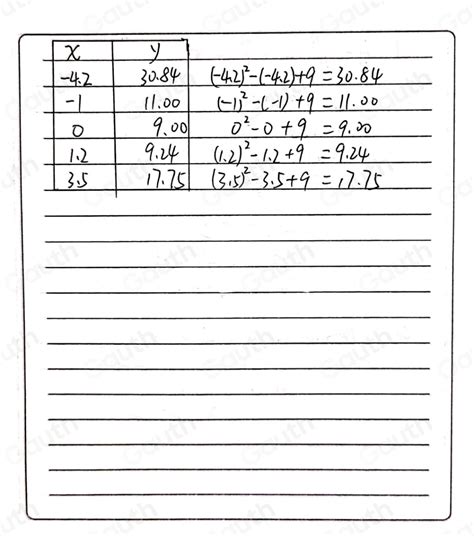 x y
-4.2 30.84 (-4.2)²-(-4.2)+9 = 30.84
-1 11.00 (-1)²-(-1)+9 = 11.00
0 9.00 0²-0+9 = 9.00
1.2 9.24 (1.2)²-1.2+9 = 9.24
3.5 17.75 (3.5)²-3.5+9 = 17.75